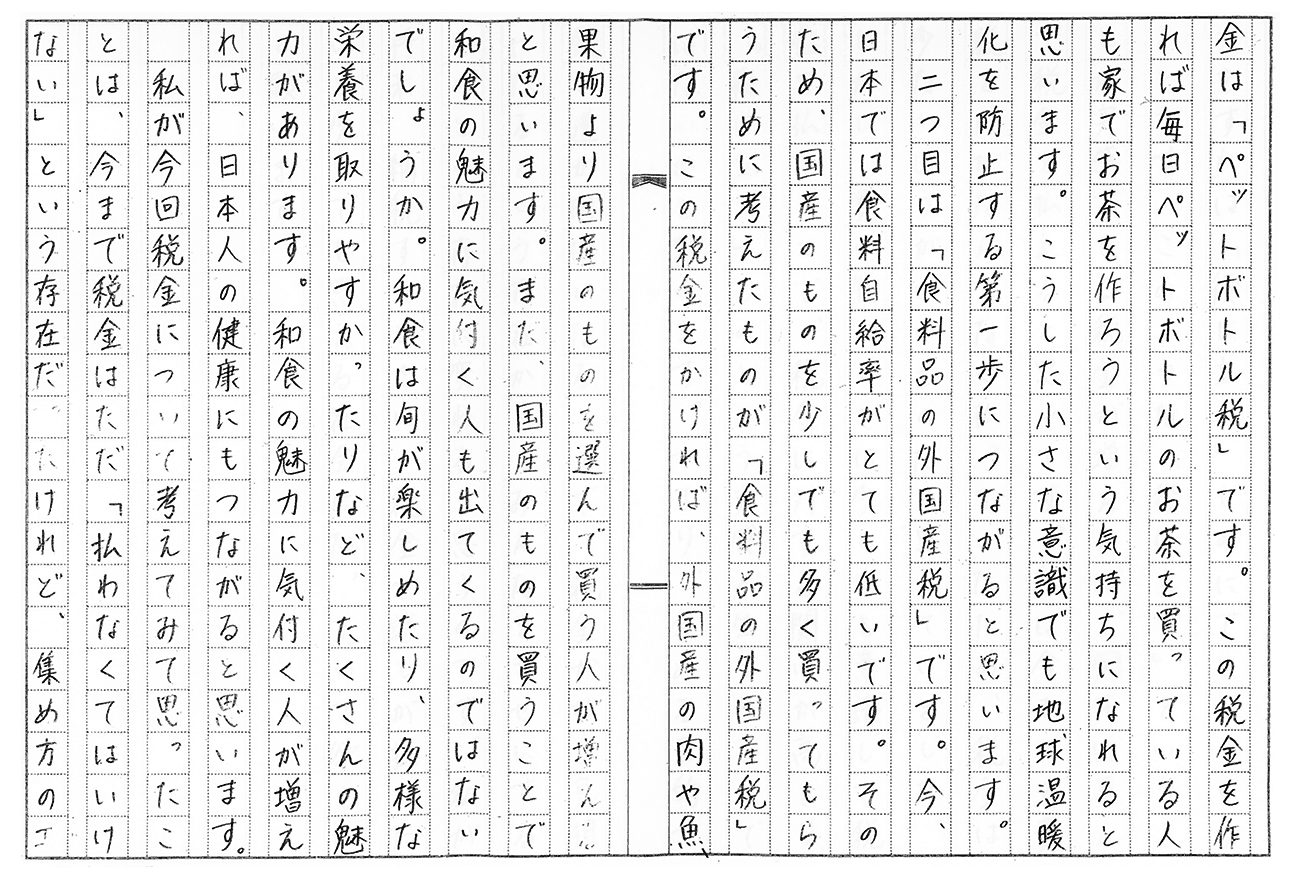 金は「ペットボトル税」です。この税金を作
れば毎日ペットボトルのお茶を買っている人
も家でお茶を作ろうという気持ちになれると
思います。こうした小さな意識でも地球温暖
化を防止する第一歩につながると思います。
二つ目は「食料品の外国産税」です。今、
日本では食料自給率がとても低いです。その
ため、国産のものを少しでも多く買ってもら
うために考えたものが「食料品の外国産税」
です。この税金をかければ、外国産の肉や魚、
果物より国産のものを選んで買う人が増え
と思います。まだ、国産のものを買うことで
和食の魅力に気付く人も出てくるのではない
でしょうか。和食は旬が楽しめたり、多様な
栄養を取りやすかったりなど、たくさんの魅
力があります。和食の魅力に気付く人が増え
れば、日本人の健康にもつながると思います。
私が今回税金について考えてみて思ったこ
とは、今まで税金はただ「払わなくてはいけ
ない」という存在だったけれど、集め方の工